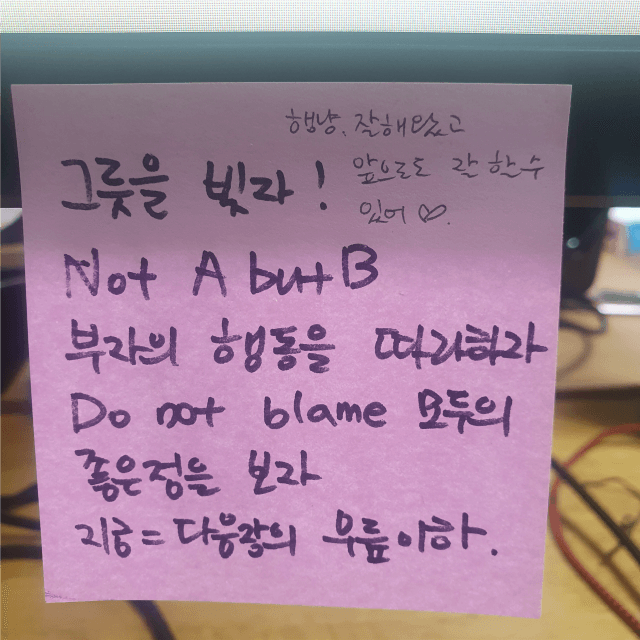 행냥, 잘해왔고
앞으로도 잘 할 수
있어♡.
그릇을 빚자!
Not A but B
부자의 행동을 따라하자
Do not blame 모두의
좋은점을 보자
지금=다음장의 무릎이하.